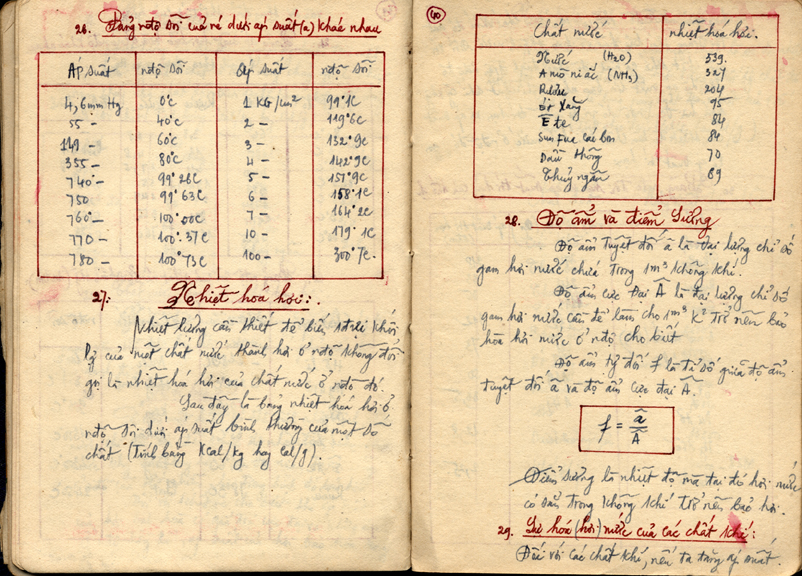 26. Bảng nđộ sôi của ré dưới áp suất (a) khác nhau
Áp suất nđộ sôi Áp suất nđộ sôi
4,6mm Hg 0°C 1 KG/cm² 99°1C
55 — 40°C 2 — 119°6C
149 — 60°C 3 — 132°9C
355 — 80°C 4 — 142°9C
740 — 99°26C 5 — 151°9C
750 99°63C 6 — 158°1C
760 — 100°00C 7 — 164°2C
770 — 100°37C 10 — 179°1C
780 — 100°73C 100 — 300°7C
27: Nhiệt hoá hơi:
Nhiệt lượng cần thiết để biến 1 khối
lg của một chất nước thành hơi ở nđộ không đổi
gọi là nhiệt hoá hơi của chất nước ở nđộ đó.
Sau đây là bảng nhiệt hoá hơi ở
nđộ sôi dưới áp suất bình thường của một số
chất (Tính bằng Kcal/kg hay Cal/g).
40
Chất nước nhiệt hoá hơi.
Nước (H₂O) 539.
Amôniắc (NH₃) 327
Rượu 204
ét Xăng 95
Ête 84
Sunfua Các bon 84
Dầu thông 70
Thuỷ ngân 69
28. Độ ẩm và điểm Sương
Độ ẩm tuyệt đối â là đại lượng chỉ số
gam hơi nước chứa trong 1m³ không khí.
Độ ẩm cực đại Â là đại lượng chỉ số
gam hơi nước cần để làm cho 1m³ K² trở nên bảo
hòa hơi nước ở nđộ cho biết
Độ ẩm tỷ đối f là tỉ số giữa độ ẩm
tuyệt đối â và độ ẩm cực đại Â.
f = â/Â
Điểm sương là nhiệt độ mà tại đó hơi nước
có sẵn trong không khí trở nên bảo hòa.
29. Sự hoá (hơi) nước của các chất khí:
Đối với các chất khí, nếu ta tăng áp suất.